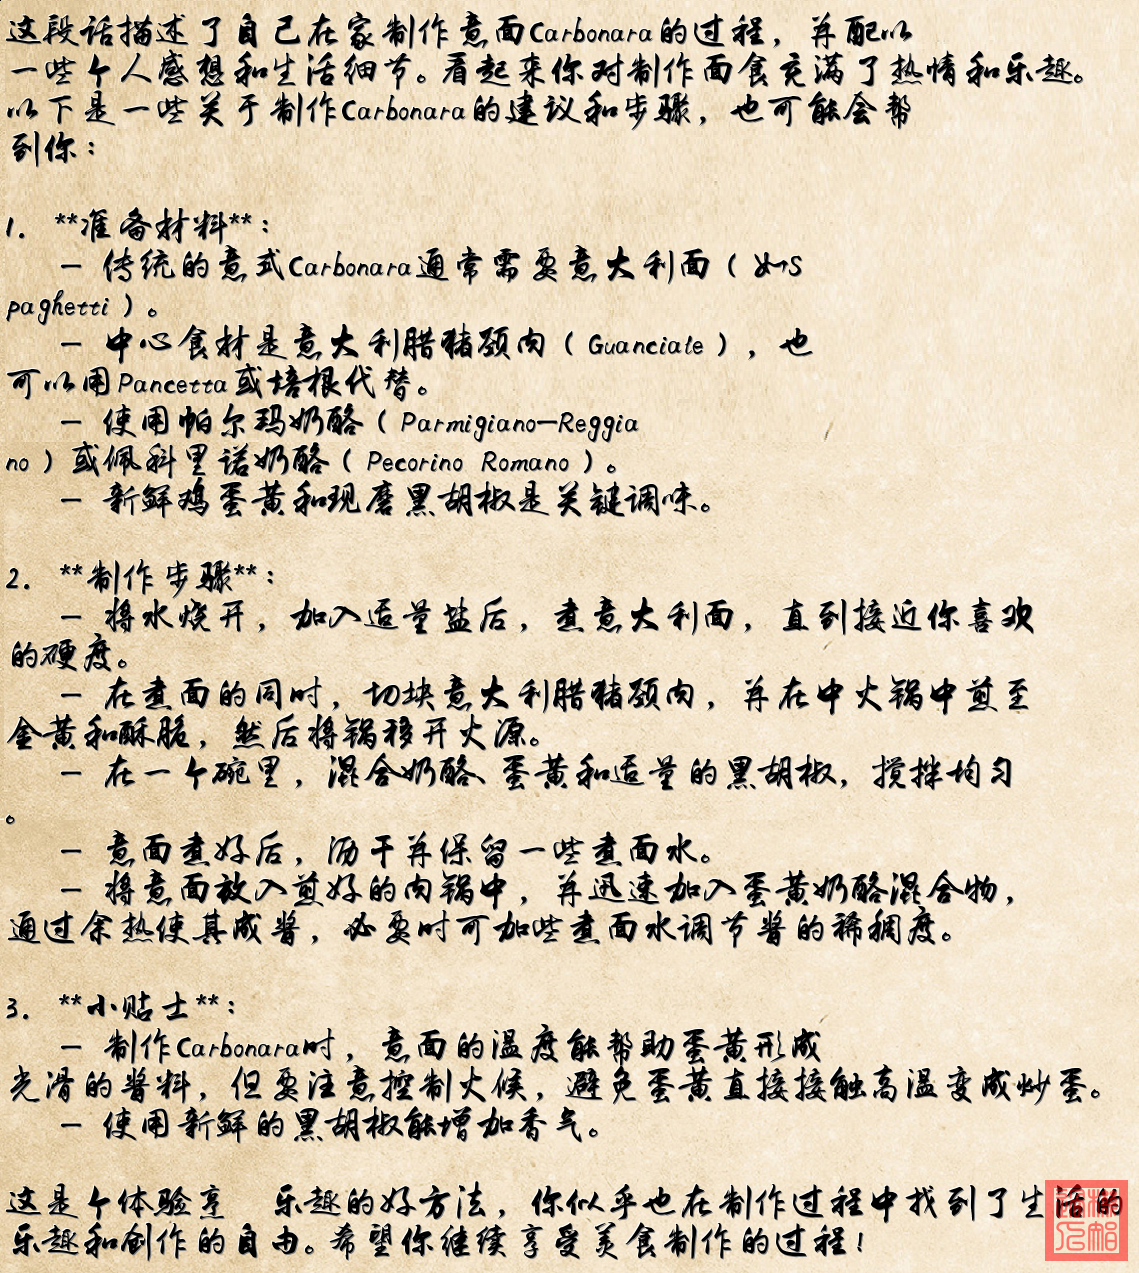 这段话描述了自己在家制作意面Carbonara的过程，并配以
一些个人感想和生活细节。看起来你对制作面食充满了热情和乐趣。
以下是一些关于制作Carbonara的建议和步骤，也可能会帮
到你：
1. **准备材料**：
— 传统的意式Carbonara通常需要意大利面（如S
paghetti）。
— 中心食材是意大利腊猪颈肉（Guanciale），也
可以用Pancetta或培根代替。
— 使用帕尔玛奶酪（Parmigiano—Reggia
no）或佩科里诺奶酪（Pecorino Romano）。
— 新鲜鸡蛋黄和现磨黑胡椒是关键调味。
2. **制作步骤**：
— 将水烧开，加入适量盐后，煮意大利面，直到接近你喜欢
的硬度。
— 在煮面的同时，切块意大利腊猪颈肉，并在中火锅中煎至
金黄和酥脆，然后将锅移开火源。
— 在一个碗里，混合奶酪、蛋黄和适量的黑胡椒，搅拌均匀
。
— 意面煮好后，沥干并保留一些煮面水。
— 将意面放入煎好的肉锅中，并迅速加入蛋黄奶酪混合物，
通过余热使其成酱，必要时可加些煮面水调节酱的稀稠度。
3. **小贴士**：
— 制作Carbonara时，意面的温度能帮助蛋黄形成
光滑的酱料，但要注意控制火候，避免蛋黄直接接触高温变成炒蛋。
— 使用新鲜的黑胡椒能增加香气。
这是个体验烹　乐趣的好方法，你似乎也在制作过程中找到了生活的
乐趣和创作的自由。希望你继续享受美食制作的过程！